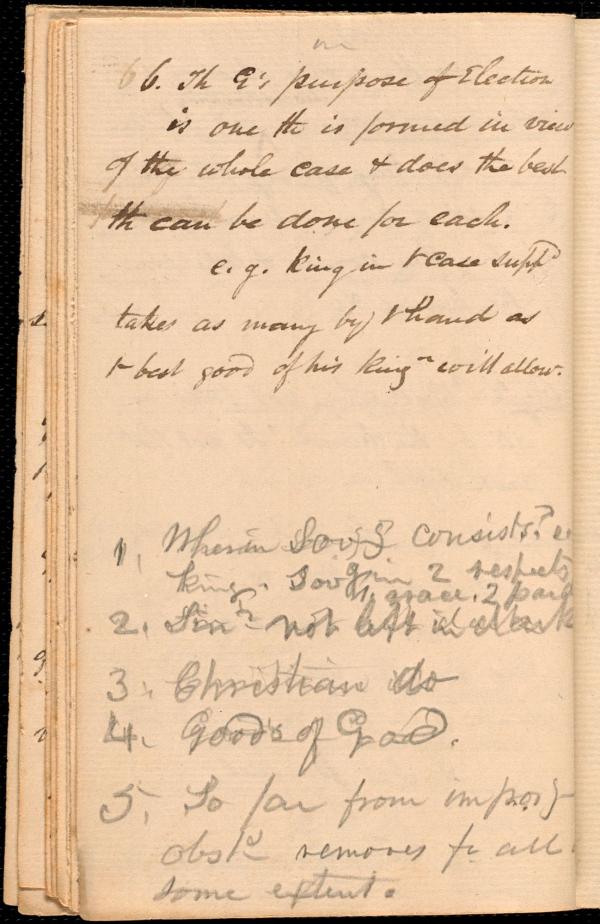 6. Th G's purpose of Election
is one th is formed in view
of the whole case & does the best
th can be done for each.
e.g. King in t case suppd
takes as many by t hand as
t best good of his kingm will allow.
1. Wherein Sovy consists? e
king. Sovg in 2 respects
1. grace. 2 pard
2. not left in dark
3. Christian do
4. of
5. So far from imposg
obstc removes fr all
some extent.